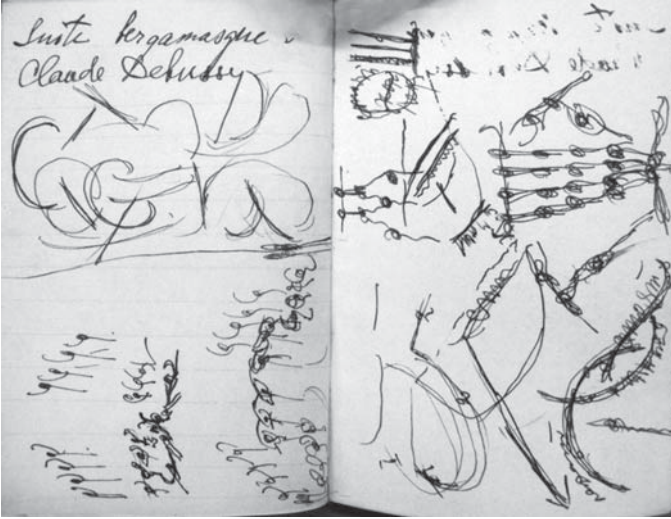 Suite bergamasque
Claude Debussy